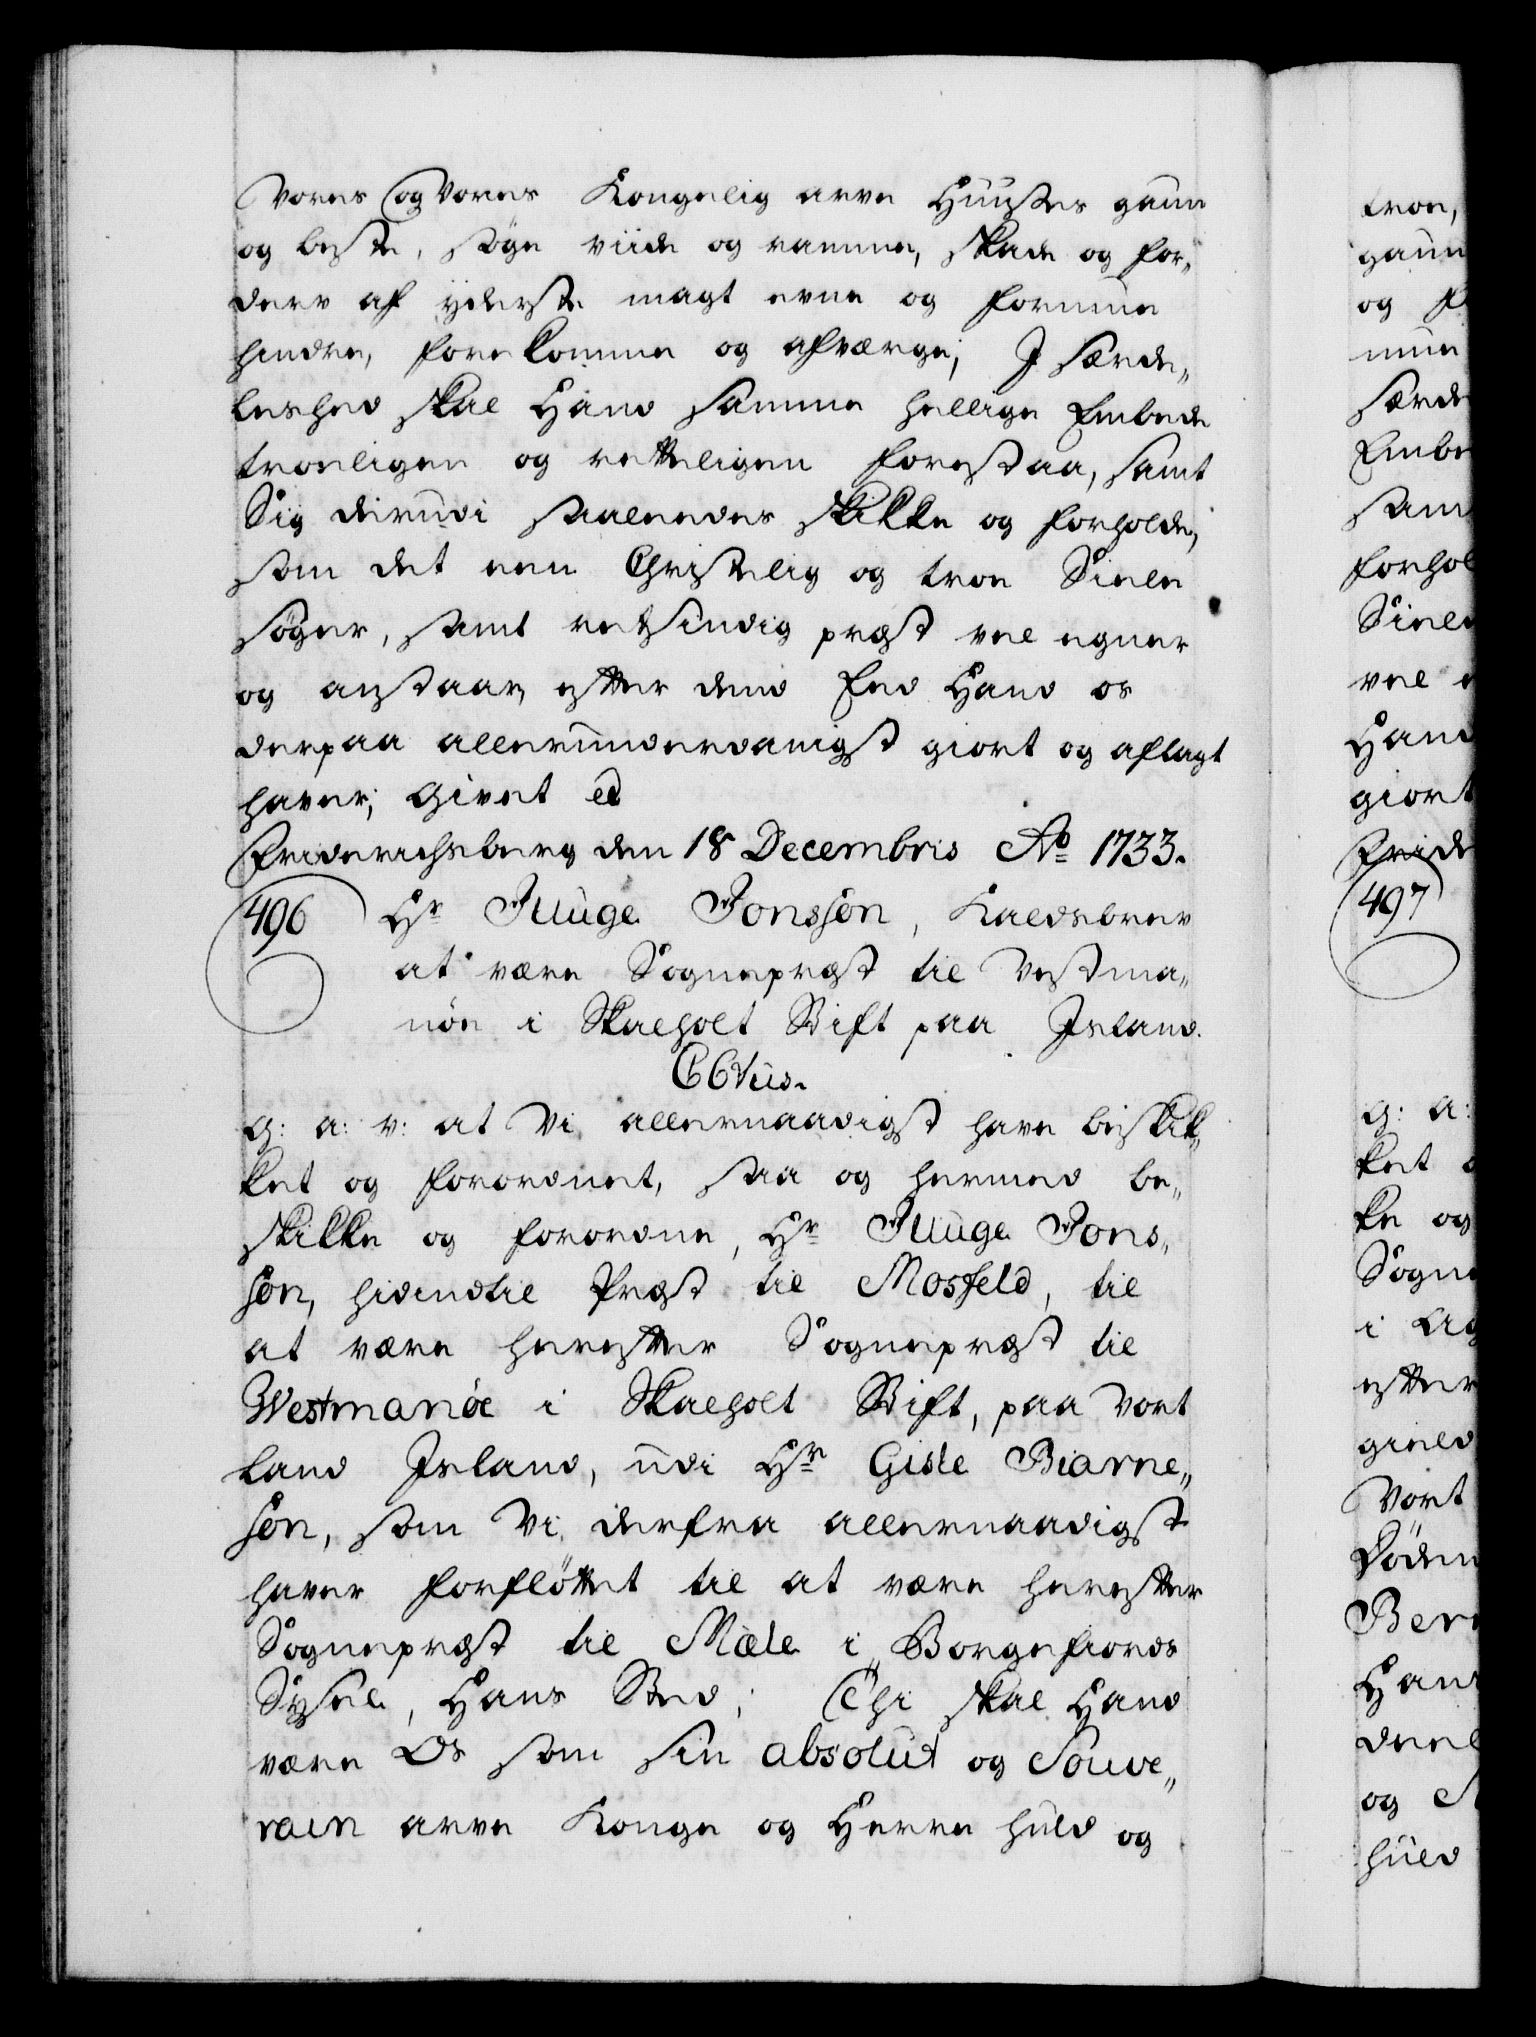 Vores og Vores Kongelig arve Huuses gaun
og beste, søge viide og ramme, skade og for„
derv af yderste magt evne og formue
hindre, forekomme og afværge; J særde„
leshed skal Hand samme hellige Embede
troeligen og retteligen forestaa, samt
Sig derudi saaledes skikke og forholde,
som det een Christelig og troe Siæle
søger, samt retsindig præst vel egner
og anstaar, efter dend Eed Hand os
derpaa allerunderdanigst giort og aflagt
haver; Givet &
Friderichsberg den 18 Decembris Ao 1733.
496 Hr Jlluge Jonssøn, Kaldsbrev
at være Sognepræst til Vestma„
nöe i Skalholt Stift paa Jsland.
C6tus.
G: A: V: at Vi allernaadigst have beskik„
ket og forordnet, saa og hermed be„
skikke og forordne, Hr Jlluge Jons„
søn, hidindtil Præst til Mosfeld, til
at være herefter Sognepræst til
Westmanöe i Skalholt Stift, paa Vort
Land Jsland, udi Hr Gisle Biarne„
søn, som Vi derfra allernaadigst
haver forflöttet til at være herefter
Sognepræst til Mæle i Borgefiords
Syssel, Hans Sted; Thi skal Hand
være Os som sin absolut og Souve„
rain arve Konge og Herre huld og
troe,
gaun
og f
mue
særde
Embe
sam
forhol
Siæle
vel e
Hand
giort
Fride
497
G: A:
ket o
ke og
Sogne
i
efter
gield
Vort
Döden
Ber
Han
deel
og
huld